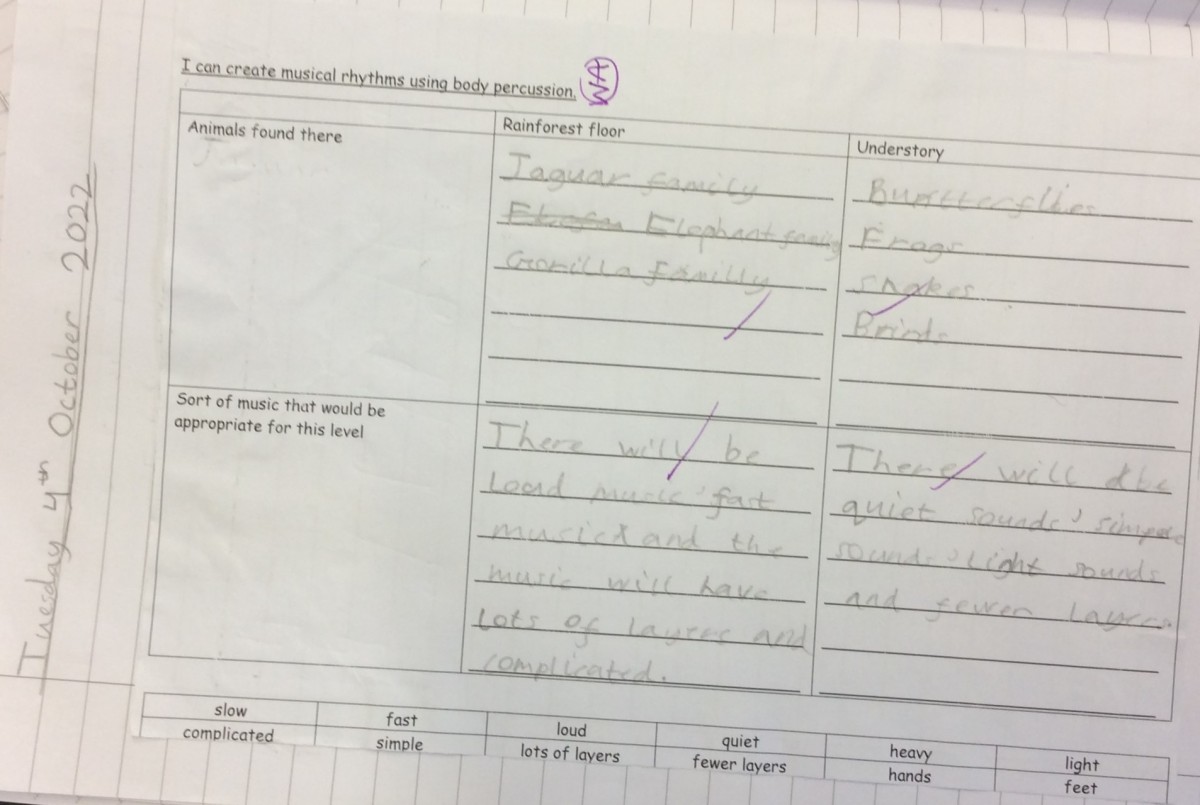 Tuesday 4th October 2022
I can create musical rhythms using body percussion.
Rainforest floor
Understory
Animals found there
Jaguar family
Elephant family
Gorilla Familly
Burttterflies
Frogs
snakes
Brirds
Sort of music that would be
appropriate for this level
There will be
Load music, fast
music and the
music will have
Lots of layers and
complicated.
There will be
quiet sounds, simple
sounds, Light sounds
and fewer Layers.
slow
fast
loud
quiet
heavy
light
complicated
simple
lots of layers
fewer layers
hands
feet